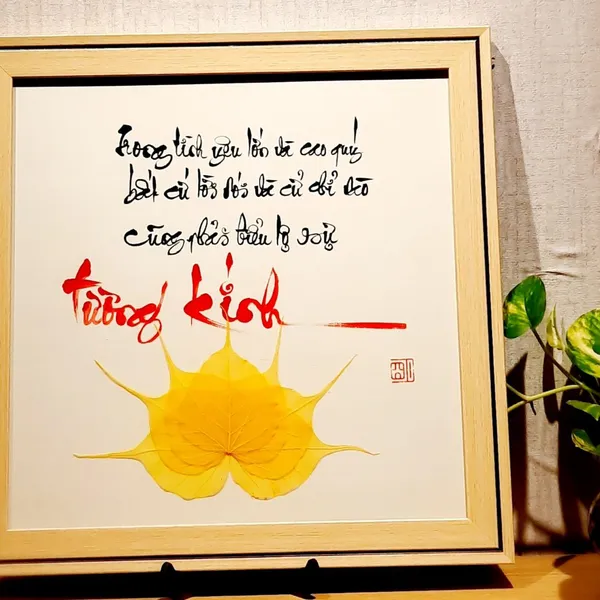 Trong tình yêu lớn và cao quý
bất cứ lời nói và cử chỉ nào
cũng phải biểu lộ sự
tương kính